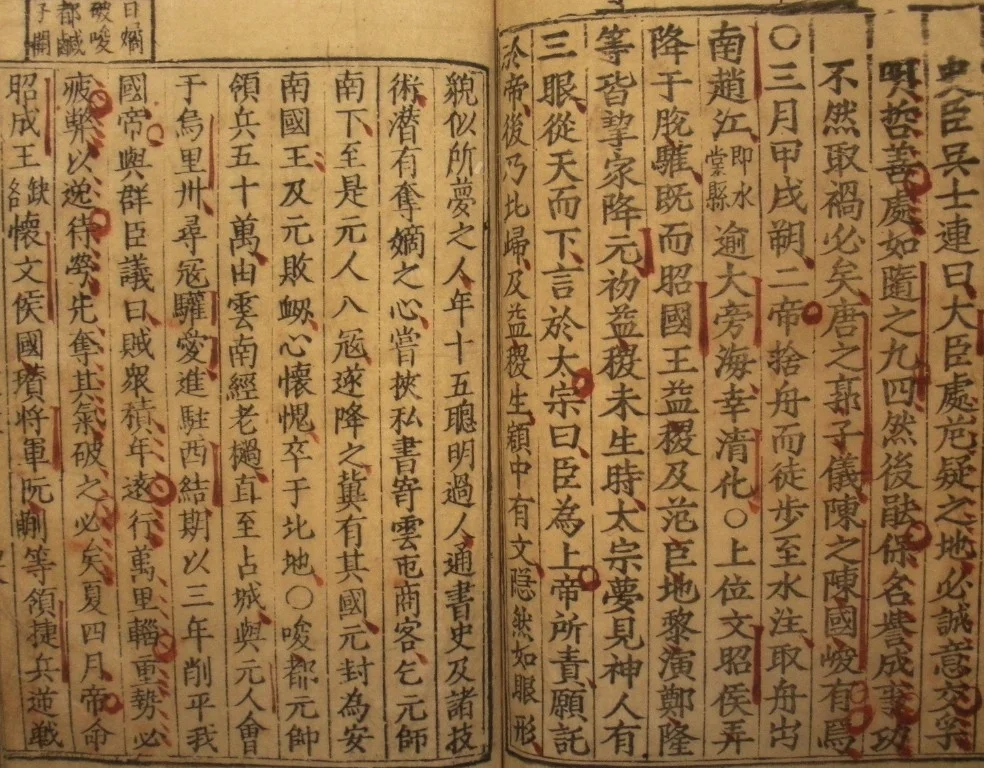 史臣吳士連曰大臣處危疑之地必誠意交孚
明哲善處如隨之九四然後能保名譽成事功
不然取禍必矣唐之郭子儀陳之陳國峻有焉
〇三月甲戌朔二帝捨舟而徒步至水注取舟出
南趙江即水棠縣逾大旁海幸清化〇上位文昭侯弄
降于脫驩既而昭國王益稷及范巨地黎演鄭隆
等皆挈家降元初益稷未生時太宗夢見神人有
三眼從天而下言於太宗曰臣為上帝所責願託
於帝後乃北歸及益稷生額中有文隐然如眼形
貌似所夢之人年十五聰明過人通書史及諸技
術潜有奪嫡之心嘗挾私書寄雲屯商客乞元師
南下至是元人入寇遂降之冀有其國元封為安
南國王及元敗衂心懷愧卒于北地〇唆都元帥
領兵五十萬由雲南經老檛直至占城與元人會
于烏里州尋寇驩愛進駐西結期以三年削平我
國帝與群臣議曰賊衆積年遠行萬里輜重勢必
疲弊以逸待勞先奪其氣破之必矣夏四月帝命
昭成王缺名懷文侯國瓚將軍阮蒯等領捷兵逆戰
日燏
破唆
都鹹
子關